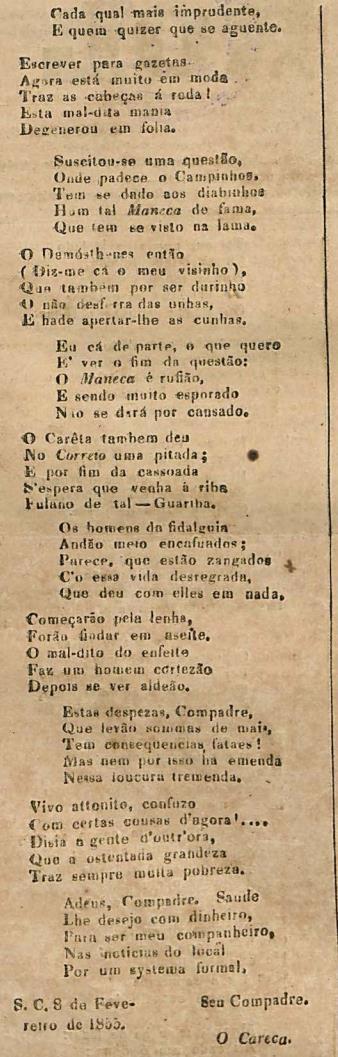 Cada qual mais imprudente,
E quem quizer que se aguente.
Escrever para gazetas
Agora está muito em moda
Traz as cabeças á roda!
Esta mal-dita mania
Degenerou em folia.
Suscitou-se uma questão,
Onde padece o Campinhos,
Tem se dado aos diabinhos
Hum tal Maneca de fama,
Que tem se visto na lama.
O Demósthenes então
(Diz-me cá o meu visinho),
Que tambem por ser durinho
O não desferra das unhas,
E hade apertar-lhe as cunhas.
Eu cá de parte, o que quero
E' ver o fim da questão:
O Maneca é rufião,
E sendo muito esporado
Não se dará por cansado.
O Carêta tambem deu
No Correio uma pitada;
E por fim da cassoada
S'espera que venha á riba
Fulano de tal — Guariba.
Os homens da fidalguia
Andão meio encafuados;
Parece, que estão zangados
C'o essa vida desregrada,
Que deu com elles em nada,
Começarão pela lenha,
Forão findar em aseite.
O mal-dito do enfeite
Faz um homem cortezão
Depois se ver aldeão.
Estas despezas, Compadre,
Que levão sommas de mais,
Tem consequencias fataes!
Mas nem por isso ha emenda
Nessa loucura tremenda.
Vivo attonito, confuzo
Com certas cousas d'agora!....
Disia a gente d'outr'ora,
Que a ostentada grandeza
Traz sempre muita pobreza.
Adeus, Compadre. Saude
Lhe desejo com dinheiro,
Para ser meu companheiro,
Nas noticias do local
Por um systema formal.
S. C. 8 de Feve- Seu Compadre.
reiro de 1855.
O Careca.